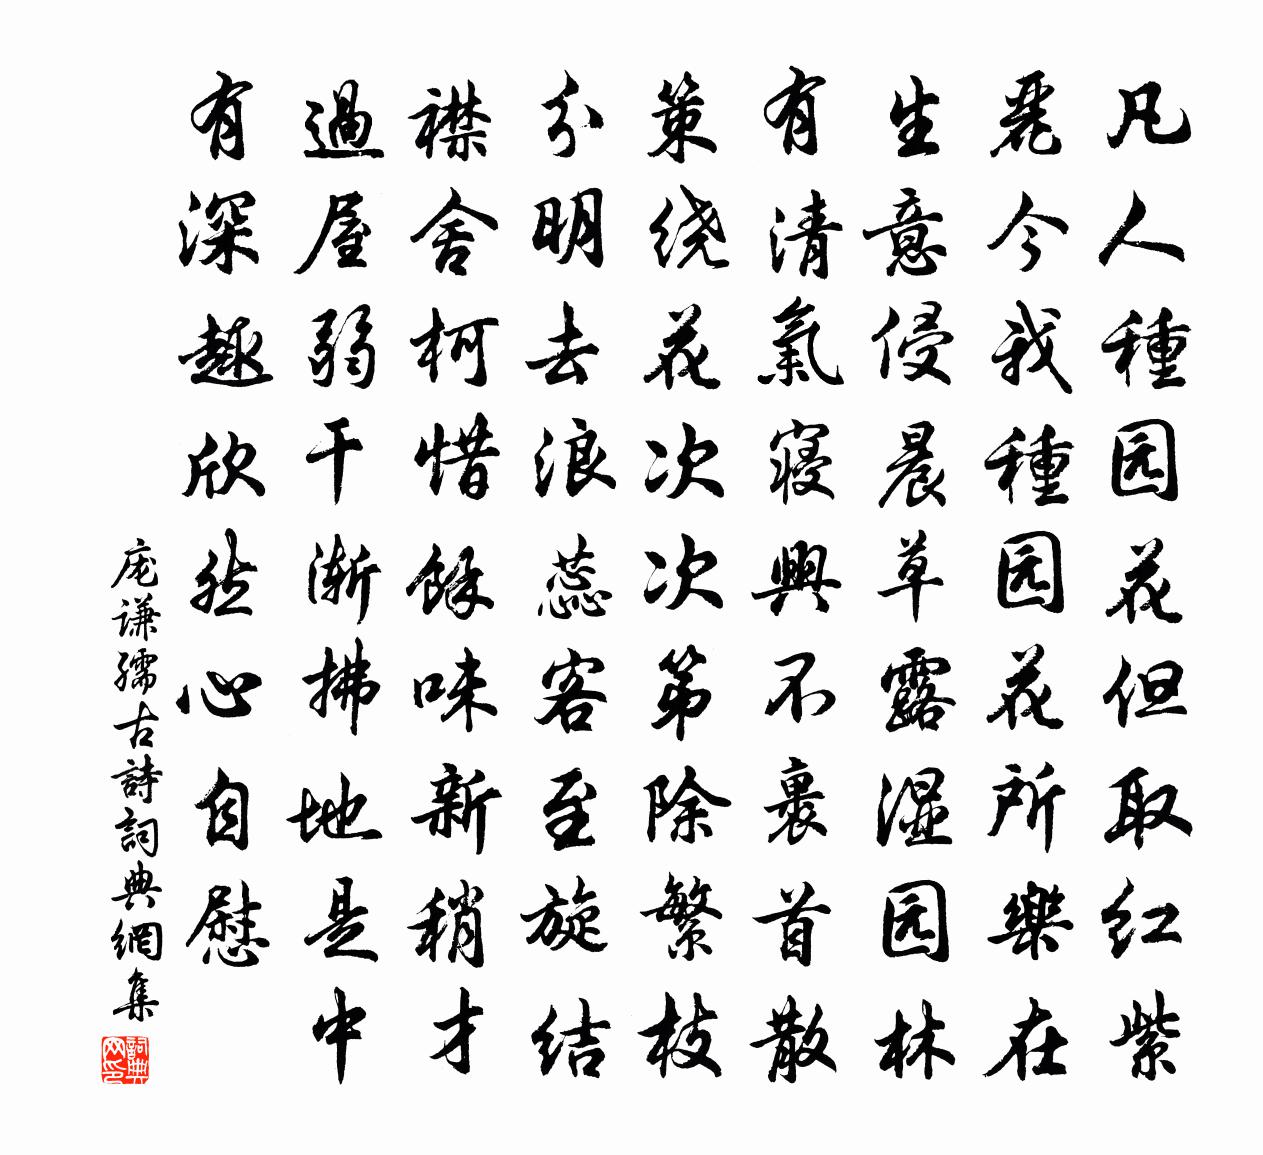 凡人種园花但取红紫
麗今我種园花所樂在
生意侵晨草露湿园林
有清氣寝興不裹首散
策绕花次次第除繁枝
分明去浪蕊客至旋结
襟舍柯惜馀味新稍才
過屋弱干渐拂地是中
有深趣欣然心自慰
庞谦孺古詩詞典網集
詞典网印